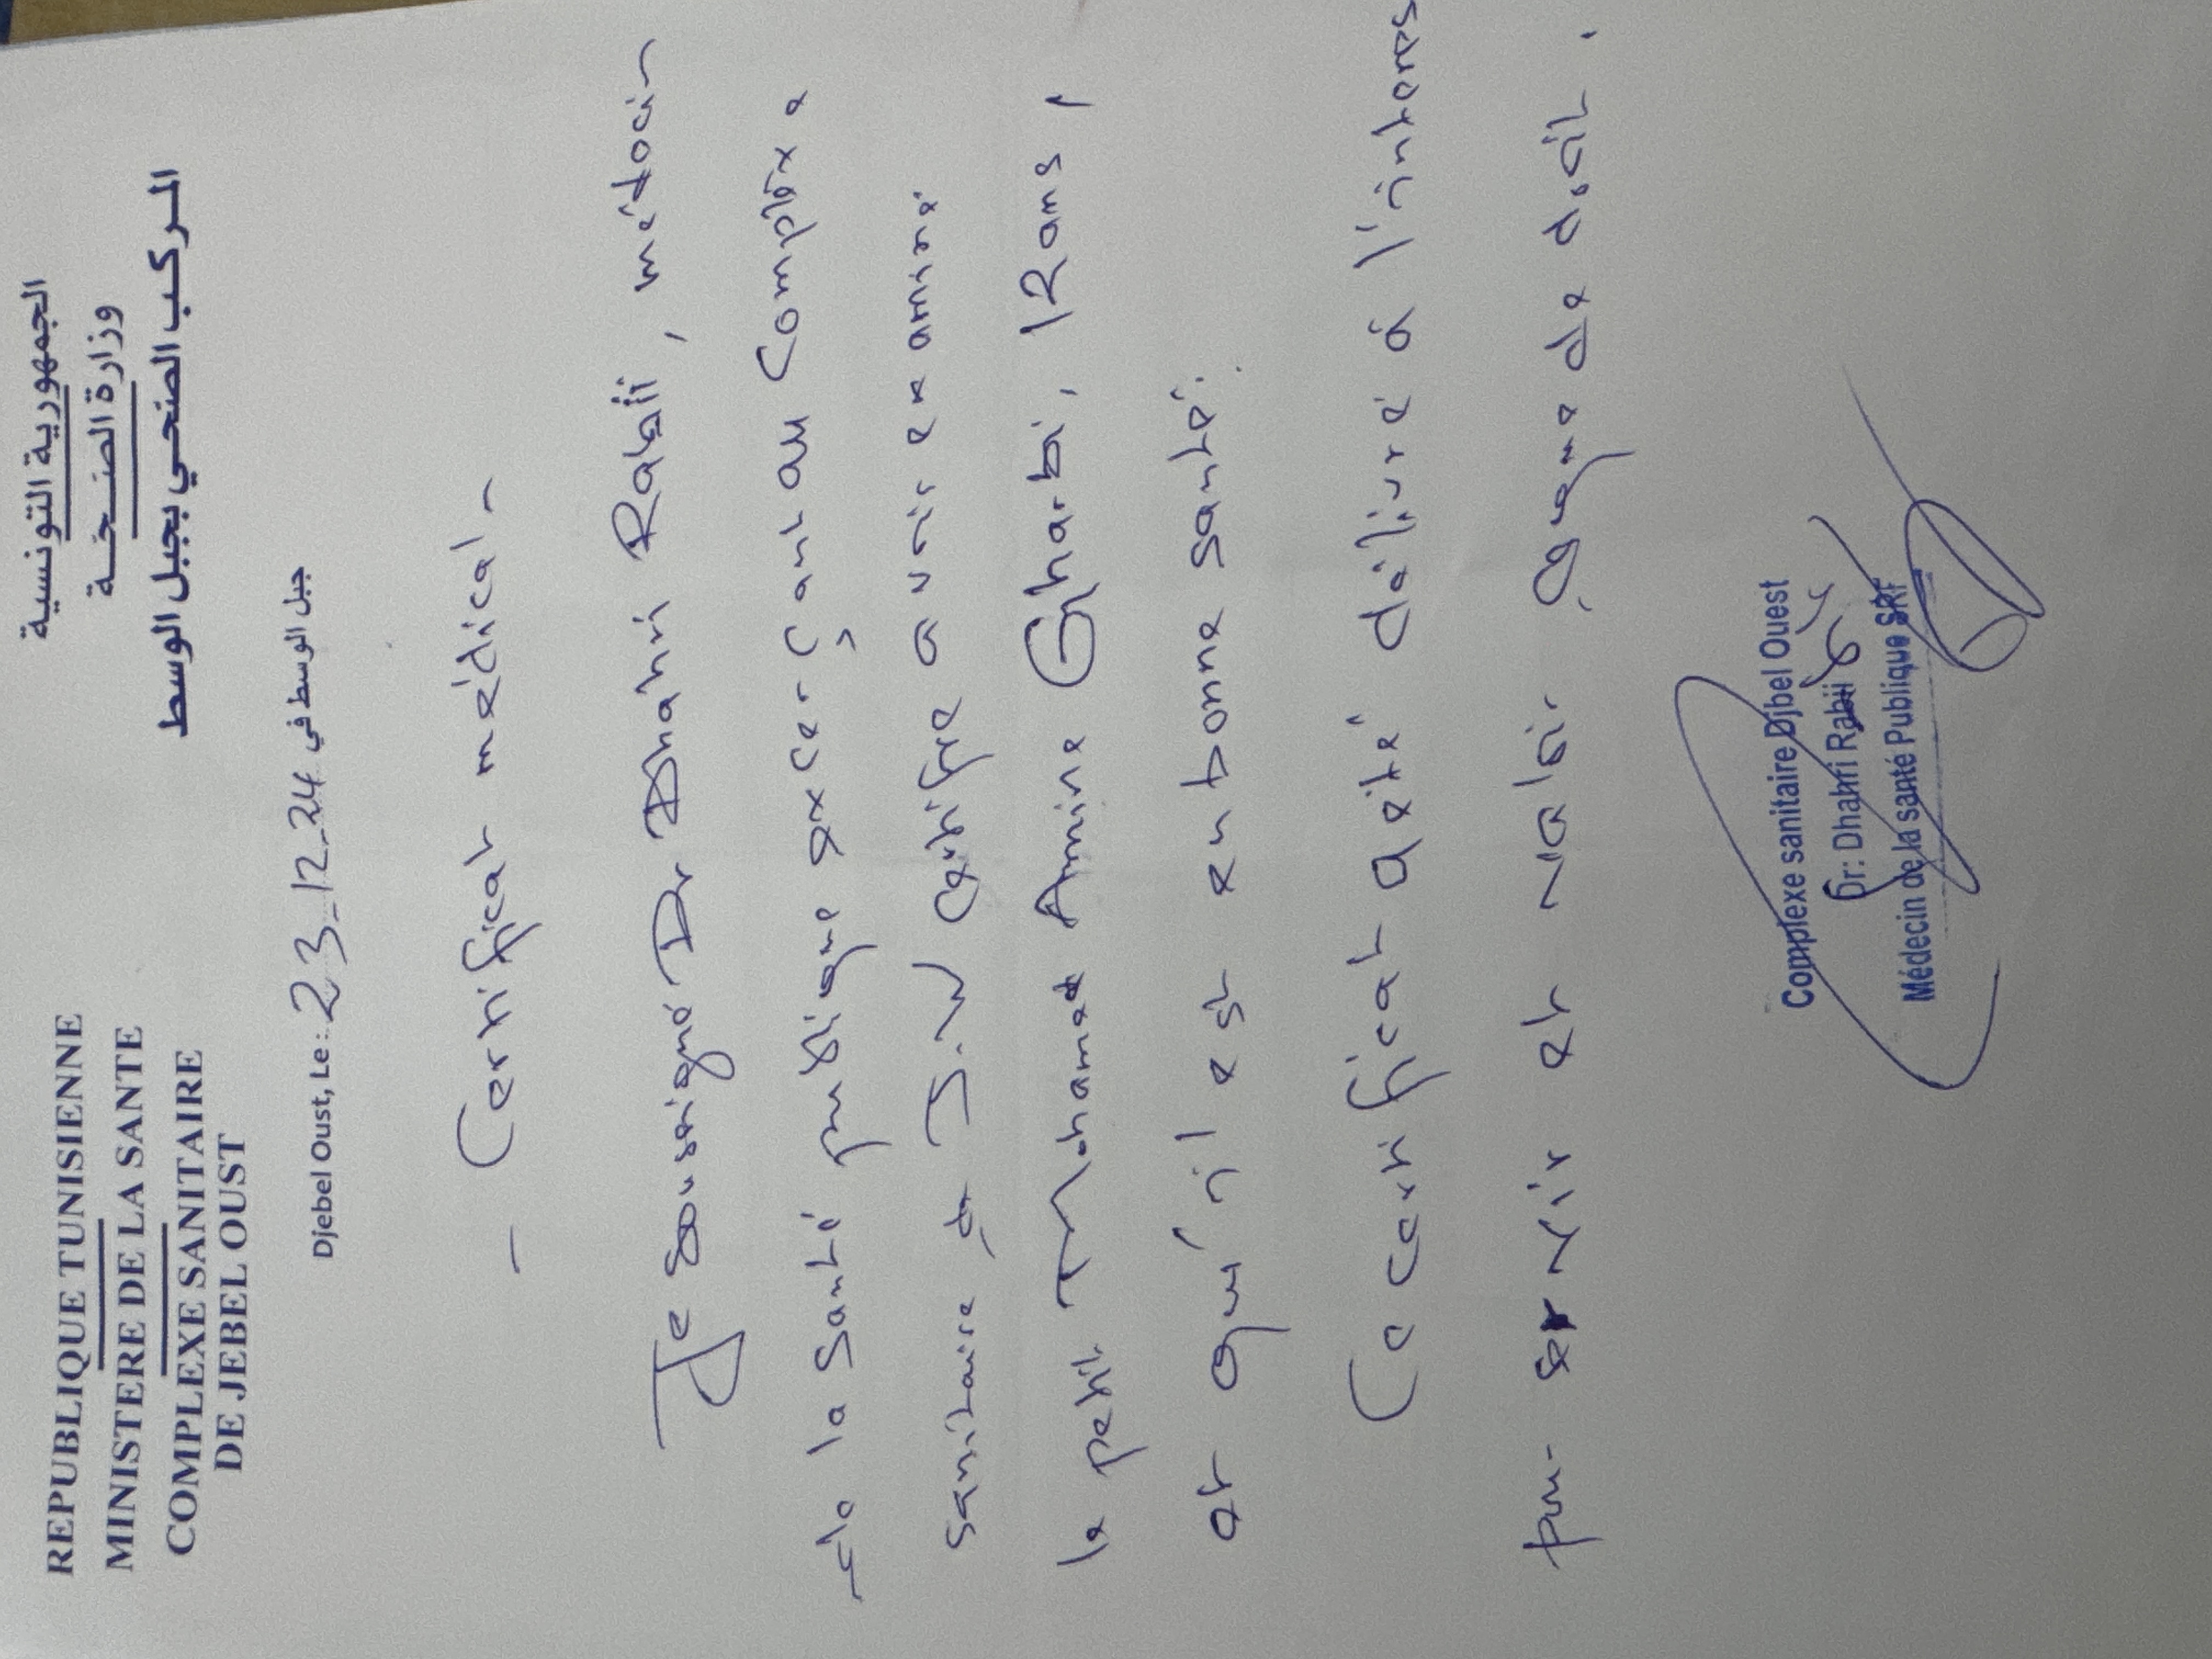 REPUBLIQUE TUNISIENNE
MINISTERE DE LA SANTE
COMPLEXE SANITAIRE
DE JEBEL OUST
الجمهورية التونسية
وزارة الصحة
المركب الصحي بجبل الوسط
Djebel Oust, Le : 23_12_24 جبل الوسط في
- Certificat médical -
Je soussigné Dr Dhahri Rabii, médecin
de la santé publique exerçant au Complexe
sanitaire de J.W certifie avoir examiné
le petit Mohamed Amine Gharbi, 12 ans,
et qu'il est en bonne santé.
Ce certificat a été délivré à l'intéressé
pour servir et valoir ce que de droit.
Complexe sanitaire Djbel Ouest
Dr: Dhahri Rabii
Médecin de la santé Publique